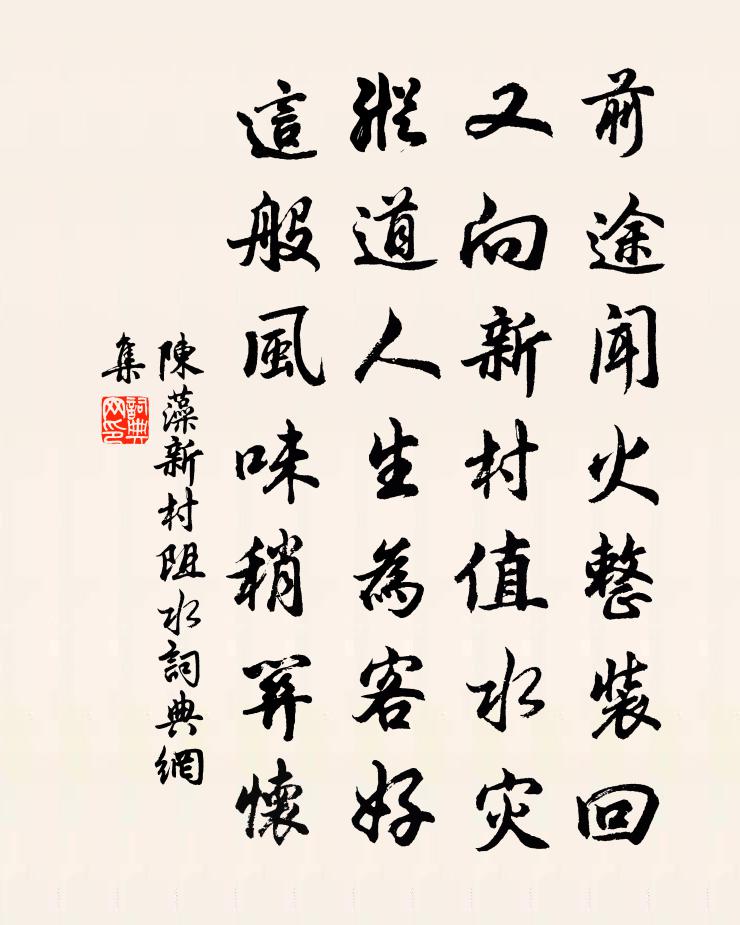 前途闻火整装回
又向新村值水灾
縱道人生為客好
這般風味稍關懷
陳藻新村阻水詞典網
集
詞典
网印